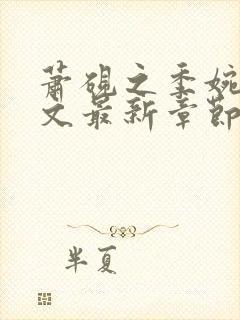 萧砚之季婉
文最新章節
半夏